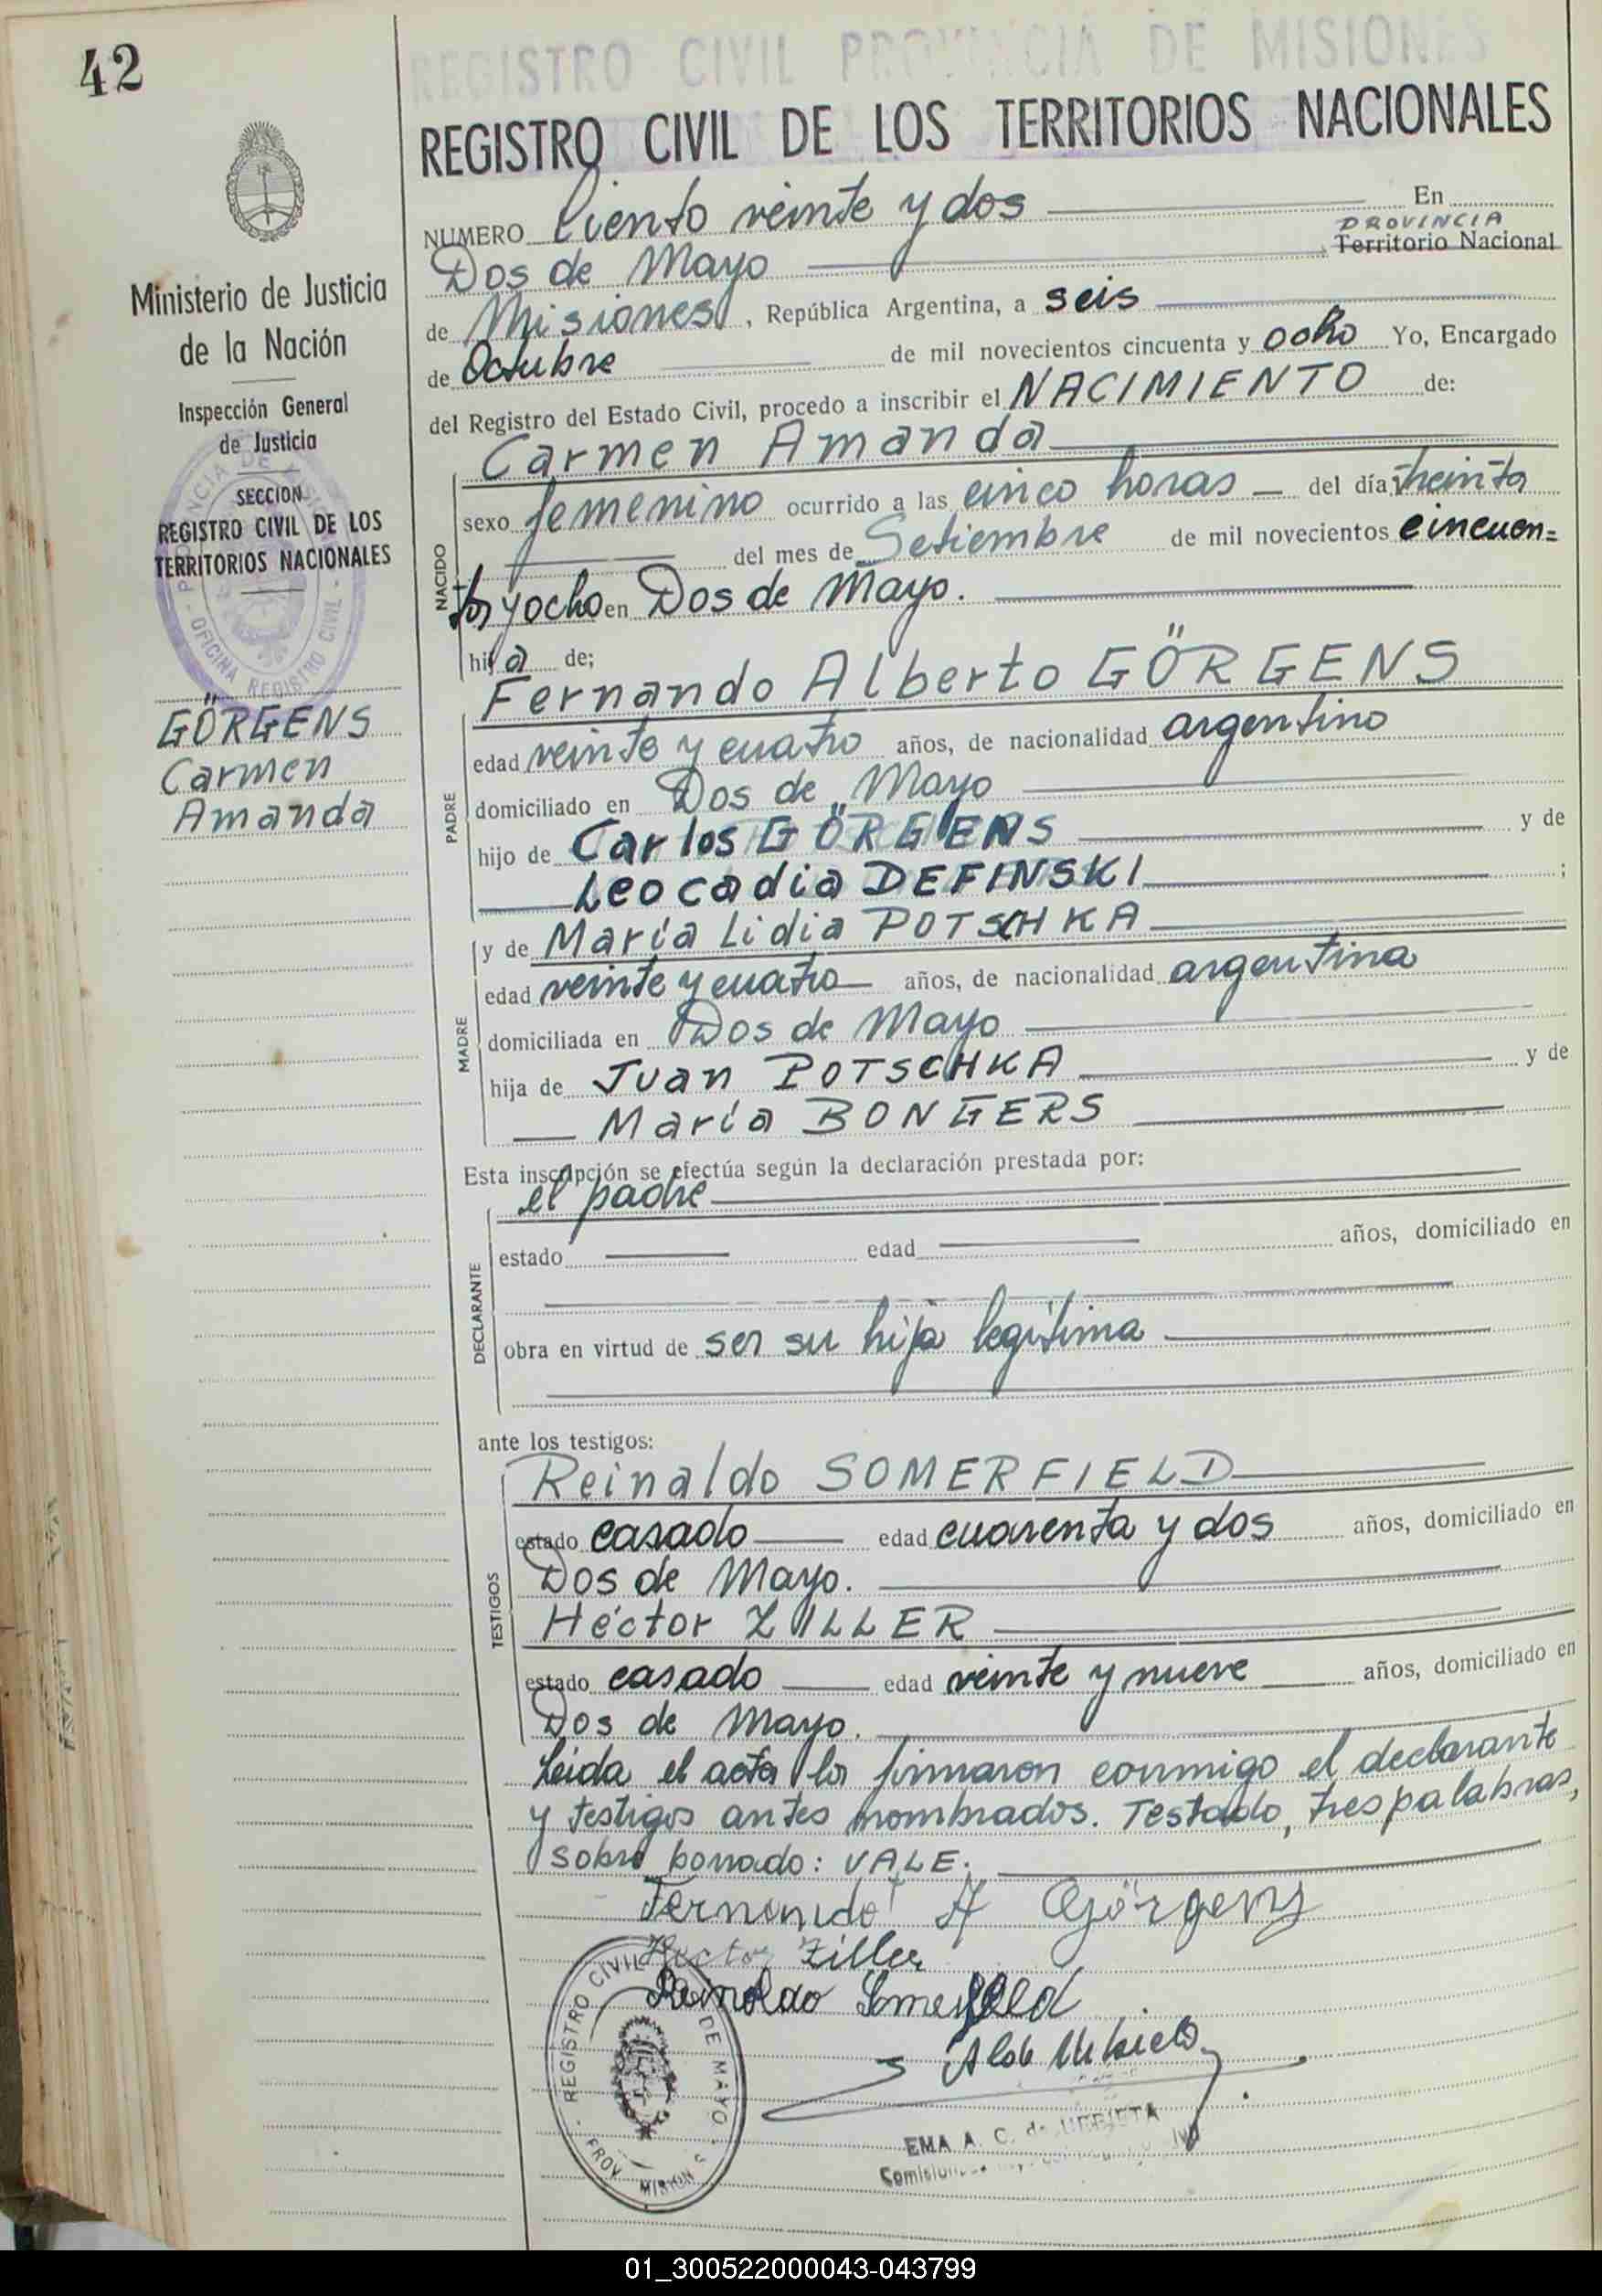 42
REGISTRO CIVIL PROVINCIA DE MISIONES
REGISTRO CIVIL DE LOS TERRITORIOS NACIONALES
Ministerio de Justicia
de la Nación
Inspección General
de Justicia
SECCION
REGISTRO CIVIL DE LOS
TERRITORIOS NACIONALES
OFICINA REGISTRO CIVIL
GÖRGENS
Carmen
Amanda
NUMERO Ciento veinte y dos En
PROVINCIA
Dos de Mayo , Territorio Nacional
de Misiones, República Argentina, a seis
de Octubre de mil novecientos cincuenta y ocho Yo, Encargado
del Registro del Estado Civil, procedo a inscribir el NACIMIENTO de:
NACIDO
Carmen Amanda
sexo femenino ocurrido a las cinco horas del día treinta
del mes de Setiembre de mil novecientos cincuen=
ta y ocho en Dos de Mayo.
hija de;
PADRE
Fernando Alberto GÖRGENS
edad veinte y cuatro años, de nacionalidad argentino
domiciliado en Dos de Mayo
hijo de Carlos GÖRGENS y de
Leocadia DEFINSKI ;
MADRE
y de María Lidia POTSCHKA
edad veinte y cuatro años, de nacionalidad argentina
domiciliada en Dos de Mayo
hija de Juan POTSCHKA y de
María BONGERS
Esta inscripción se efectúa según la declaración prestada por:
DECLARANTE
el padre
estado edad años, domiciliado en
obra en virtud de ser su hija legítima
ante los testigos:
TESTIGOS
Reinaldo SOMERFIELD
estado casado edad cuarenta y dos años, domiciliado en
Dos de Mayo.
Héctor ZILLER
estado casado edad veinte y nueve años, domiciliado en
Dos de Mayo.
Leida el acta la firmaron conmigo el declarante
y testigos antes nombrados. Testado, tres palabras,
sobre borrado: VALE.
Fernando A Görgens
Hector Ziller
Reinoldo Somerfeld
REGISTRO CIVIL DE MAYO
PROV. MISIONES
EMA A. C. de URBIETA